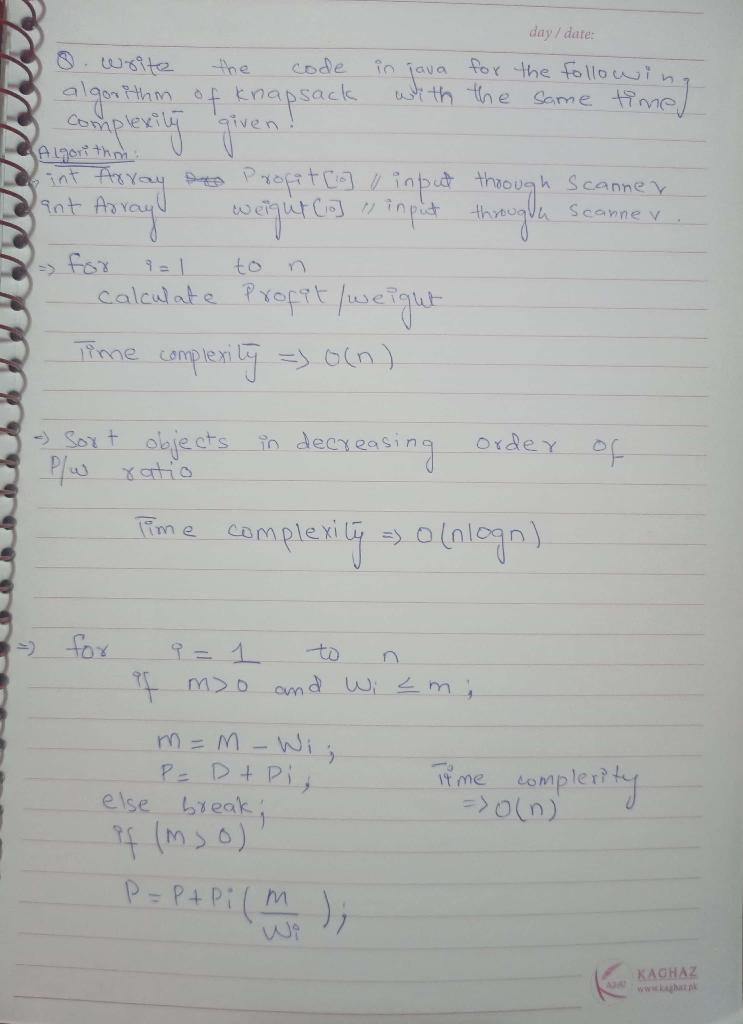 day / date:
Q. Write the code in java for the following
algorithm of knapsack with the same time
complexity given.
Algorithm:
int Array Profit[10] // input through Scanner
int Array weight[10] // input through Scanner.
=> for i=1 to n
calculate Profit/weight
Time complexity => O(n)
=> Sort objects in decreasing order of
P/w ratio
Time complexity => O(nlogn)
=> for i = 1 to n
if m>0 and Wi ≤ m;
m = M - Wi;
P = D + Pi;
Time complexity
else break;
=> O(n)
if (m>0)
P = P + Pi ( m
Wi );
KAGHAZ
www.kaghaz.pk